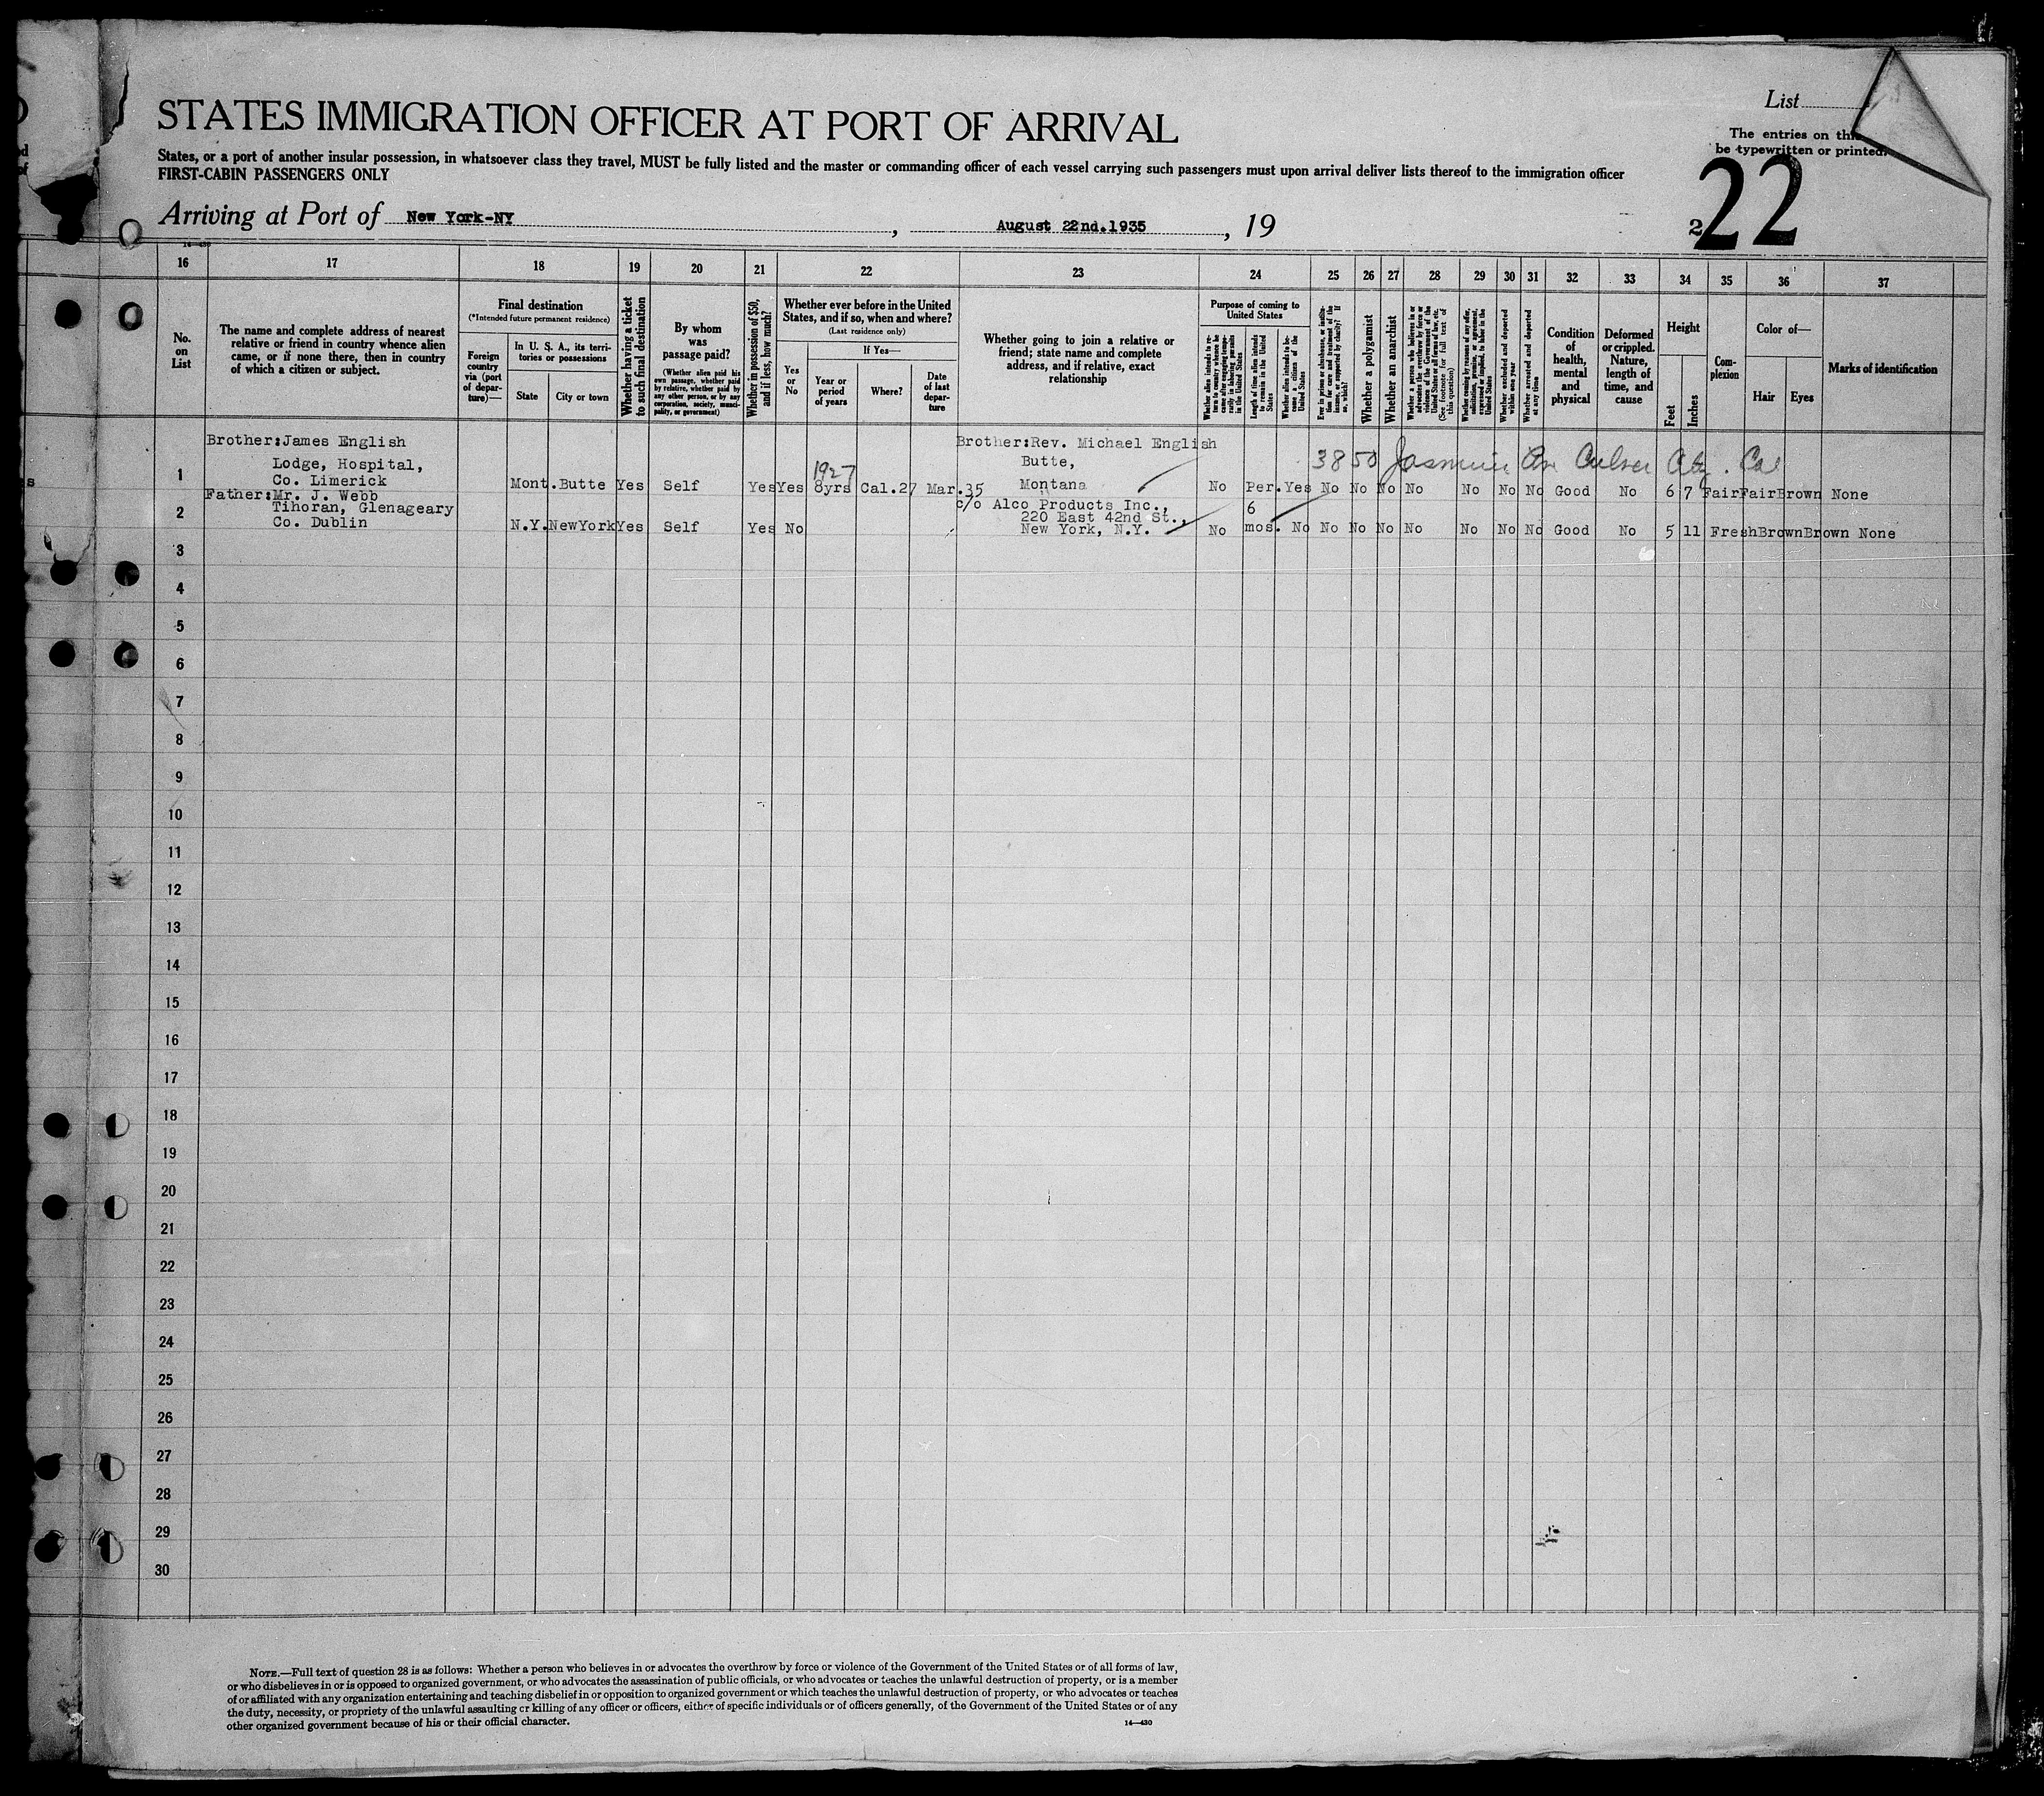 List
STATES IMMIGRATION OFFICER AT PORT OF ARRIVAL
The entries on
be typewritten or printed.
States, or a port of another insular possession, in whatsoever class they travel, MUST be fully listed and the master or commanding officer of each vessel carrying such passengers must upon arrival deliver lists thereof to the immigration officer
FIRST-CABIN PASSENGERS ONLY
22
Arriving at Port of New York-NY, August 22nd.1935, 19
2
16 17 18 19 20 21 22 23 24 25 26 27 28 29 30 31 32 33 34 35 36 37
No. on List
The name and complete address of nearest relative or friend in country whence alien came, or if none there, then in country of which a citizen or subject.
Final destination
(*Intended future permanent residence)
Foreign country via (port of departure)—
In U. S. A., its territories or possessions
State
City or town
Whether having a ticket to such final destination
By whom was passage paid?
(Whether alien paid his own passage, whether paid by relative, whether paid by any other person, or by any corporation, society, municipality, or government)
Whether in possession of $50, and if less, how much?
Whether ever before in the United States, and if so, when and where?
(Last residence only)
Yes or No
If Yes—
Year or period of years
Where?
Date of last departure
Whether going to join a relative or friend; state name and complete address, and if relative, exact relationship
Purpose of coming to United States
Whether alien intends to return to country whence he came after engaging temporarily in laboring pursuits in the United States
Length of time alien intends to remain in the United States
Whether alien intends to become a citizen of the United States
Ever in prison or almshouse, or institution for care and treatment of the insane, or supported by charity? If so, which?
Whether a polygamist
Whether an anarchist
Whether a person who believes in or advocates the overthrow by force or violence of the Government of the United States or all forms of law, etc. (See footnote for full text of this question)
Whether coming by reasons of any offer, solicitation, promise, or agreement, expressed or implied, to labor in the United States
Whether excluded and deported within one year
Whether arrested and deported at any time
Condition of health, mental and physical
Deformed or crippled. Nature, length of time, and cause
Height
Feet
Inches
Complexion
Color of—
Hair
Eyes
Marks of identification
Brother:James English Brother:Rev. Michael English
Lodge, Hospital, 1927 Butte, 3850 Jasmine Av Culver City. Cal
1 Co. Limerick Mont. Butte Yes Self Yes Yes 8yrs Cal.27 Mar.35 Montana No Per. Yes No No No No No No No Good No 6 7 Fair Fair Brown None
Father:Mr. J. Webb c/o Alco Products Inc.,
2 Tihoran, Glenageary 220 East 42nd St., 6
Co. Dublin N.Y. NewYork Yes Self Yes No New York, N.Y. No mos. No No No No No No No No Good No 5 11 Fresh Brown Brown None
3
4
5
6
7
8
9
10
11
12
13
14
15
16
17
18
19
20
21
22
23
24
25
26
27
28
29
30
NOTE.—Full text of question 28 is as follows: Whether a person who believes in or advocates the overthrow by force or violence of the Government of the United States or of all forms of law,
or who disbelieves in or is opposed to organized government, or who advocates the assassination of public officials, or who advocates or teaches the unlawful destruction of property, or is a member
of or affiliated with any organization entertaining and teaching disbelief in or opposition to organized government or which teaches the unlawful destruction of property, or who advocates or teaches
the duty, necessity, or propriety of the unlawful assaulting or killing of any officer or officers, either of specific individuals or of officers generally, of the Government of the United States or of any
other organized government because of his or their official character.
14—430